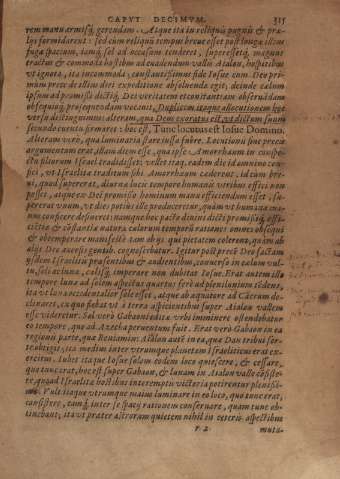 CAPVT DECIMVM. 315
rem manu armisq́; gerendam. Atque ita in reliquis pugnis & præ-
lijs formidarent: sed cùm reliquū tempus breue esset post longæ illius
fugæ spacium, iamq́; sol ad occasum tenderet, superessetq́; magnus
tractus & commoda hostibus ad euadendum vallis Aialon, hospitibus
vt ignota, ita incommoda, constantissimus fide Iosue eum. Deo pri-
mùm prece de illius diei expeditione absoluenda egit, deinde cælum
ipsum ad promissi diuini, Dei veritatem et cunctantiam obseruādam
obsequiúq; prosequendum vocauit. Duplicem itaque allocutionem hoc
versu distinguimus: alteram, qua Deum exoratus est, vt dictum suum
secundo euentu firmaret: hoc est, Tunc locutus est Iosue Domino.
Alteram verò, qua luminaria stare iussa fuere. Locutionis siue precis
argumentum erat, illam diem esse, qua ipse Amorrhæum in conspe-
ctu filiorum Israel tradidisset: vellet itaq; eadem die id omnino con-
fici, vt Israëlita traditum sibi Amorrhæum cæderent, id cùm bre-
ui, quod supererat, diurnæ lucis tempore humanis viribus effici non
posset, atque ex Dei promisso hominum manu efficiendum esset, su-
peresse vnum, vt diei potius illi produceretur, quàm vt humana ma-
num conficere desineret: namque hoc pacto diuini dicti promissiq́; offi-
cia & cōstantia natura cælorum temporū rationes omnes obsequi
& obtemperare manifestè tam abijs qui pietatem colerent, quàm ab
alijs Deo auersis gentib. cognosceretur. Igitur post preces Deo factam
ijsdem Israelitis præsentibus & audientibus, conuersus in cælum vul-
tu, soli ac lunæ, cælisq́; imperare non dubitat Iosue. Erat autem illo
tempore luna ad solem aspectus quartus ferè ad plenilunium tedens,
ita vt luna occidentalior sole esset, atque ab æquatore ad Cācrum de-
clinaret, ex quo fiebat vt à terra aspicientibus super Aialon vallem
esse videretur. Sol verò Gabaon tedita vrbi imminere ostendebatur
eo tempore, quo ad Azecha peruentum fuit. Erat verò Gabaon in ea
regionis parte, qua Beniamim: Aialon autē in ea, qua Dan tribus sor-
te cultusigit, ita medius inter vtrumque planetam Israeliticus erat ex-
ercitus. Iubet itaque Iosue solem eodem loco quiescere, & cessare,
quo tunc erat, hoc est super Gabaon, & lunam in Aialon valle cōsiste-
re, quoad Israelita hostibus interemptis victoria potirentur plenissi-
ma. Vult itaque vtrumque maius luminare in eo loco, quo tunc erat,
consistere, eamq́; inter se spacij rationem conseruare, quam tunc ob-
tinebant; ita vt præter astrorum quietem nihil in cæteris aspectibus
r 2 muta-